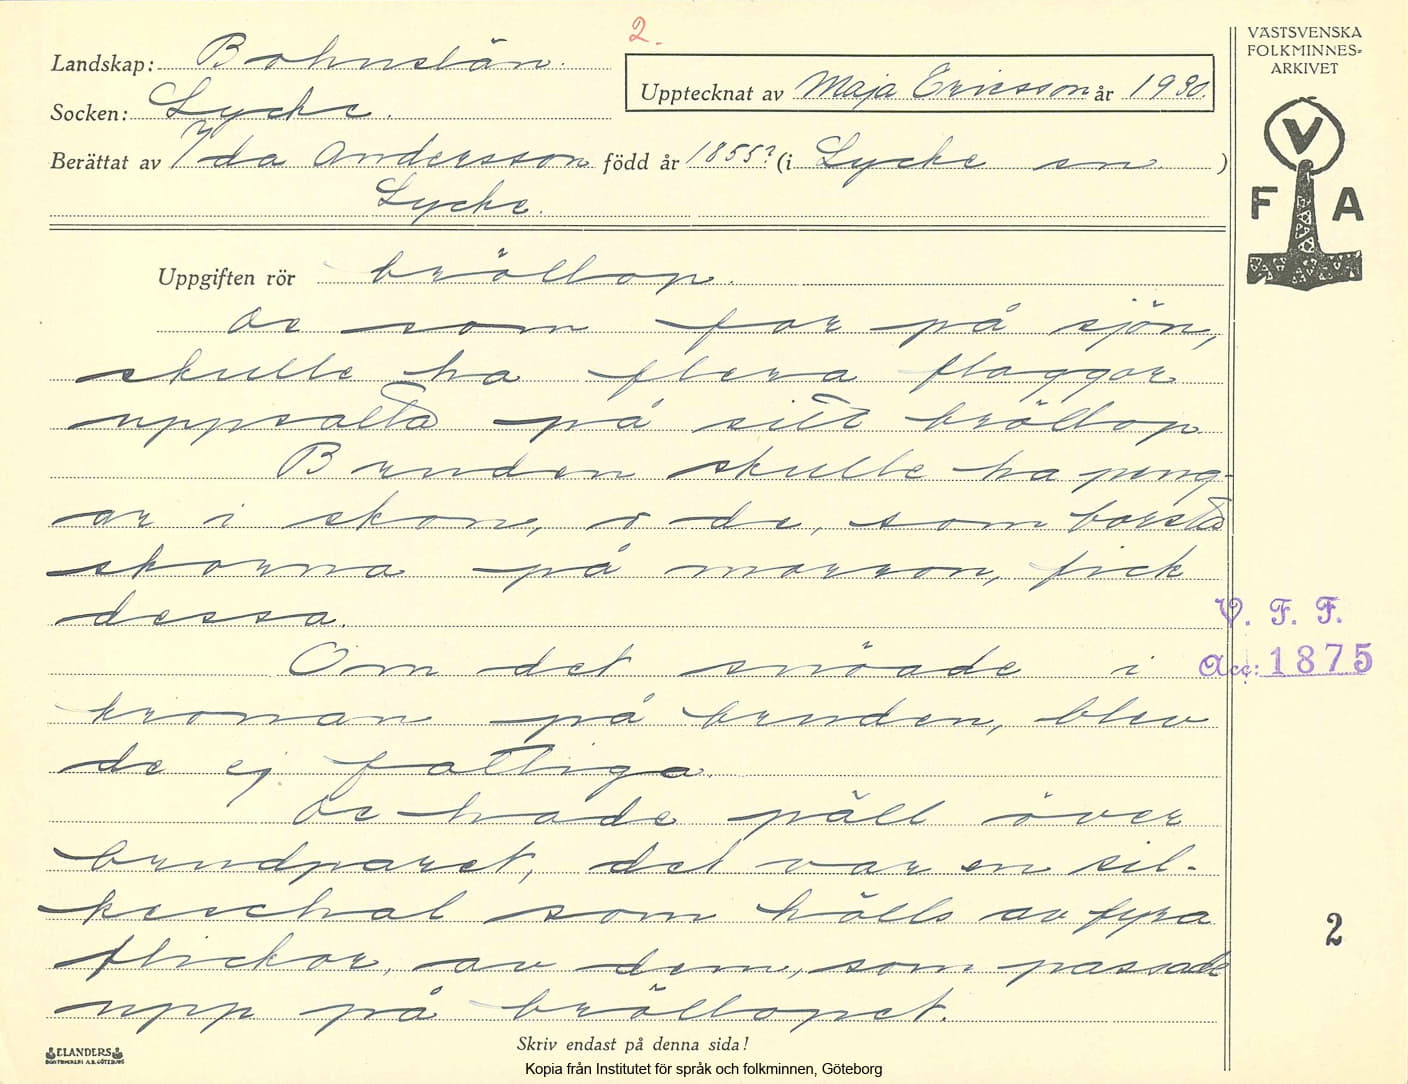 2.
VÄSTSVENSKA
FOLKMINNES=
ARKIVET
Landskap: Bohuslän.
Upptecknat av Maja Ericsson år 1930.
Socken: Lycke.
Berättat av Ida Andersson född år 1855? (i Lycke sn )
Lycke.
V
F A
Uppgiften rör bröllop.
De som for på sjön,
skulle ha flera flaggor
uppsatta på sitt bröllop
Bruden skulle ha peng-
ar i skon, o de, som borsta
skorna på morron, fick
dessa.
V. F. F.
Om det snöade i
Acc: 1875
kronan på bruden, blev
de ej fattiga.
De hade päll över
brudparet, det var en sil-
keschal som hölls av fyra
2
flickor, av dem, som passade
upp på bröllopet.
Skriv endast på denna sida!
ELANDERS
BOKTRYCKERI A.B. GÖTEBORG
Kopia från Institutet för språk och folkminnen, Göteborg